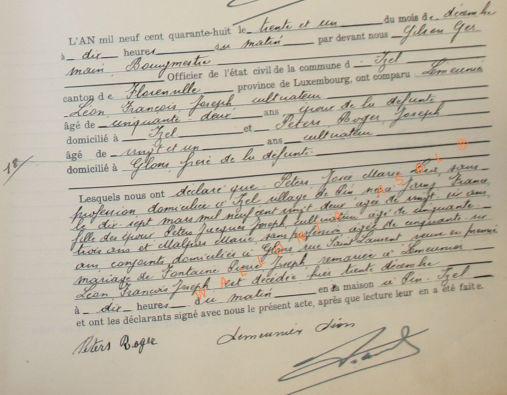 L'AN mil neuf cent quarante-huit le trente et un du mois de décembre
à dix heures du matin par devant nous Gilson Ger
main, Bourgmestre Officier de l'état civil de la commune d Izel
canton de Florenville province de Luxembourg, ont comparu Lemeunier
Léon François Joseph cultivateur
âgé de cinquante deux ans époux de la défunte
domicilié à Izel et Peters Roger Joseph
âgé de vingt et un ans cultivateur
domicilié à Glons frère de la défunte
18/
Lesquels nous ont déclaré que Peters Marie sans
profession, domiciliée à Izel village de Pin née à France
le dix sept mars mil neuf cent vingt deux, agée de vingt six ans,
fille des époux Peters Jacques Joseph cultivateur agé de cinquante
trois ans et Marie, sans profession agée de cinquante six
ans, conjoints domiciliés à Glons, rue Saint Laurent, veuve en premier
mariage de Fontaine Joseph, remariée à Lemeunier
Léon François Joseph est décédée hier trente décembre
à dix heures du matin en sa maison à Pin, Izel
et ont les déclarants signé avec nous le présent acte, après que lecture leur en a été faite.
Peters Roger Lemeunier Léon